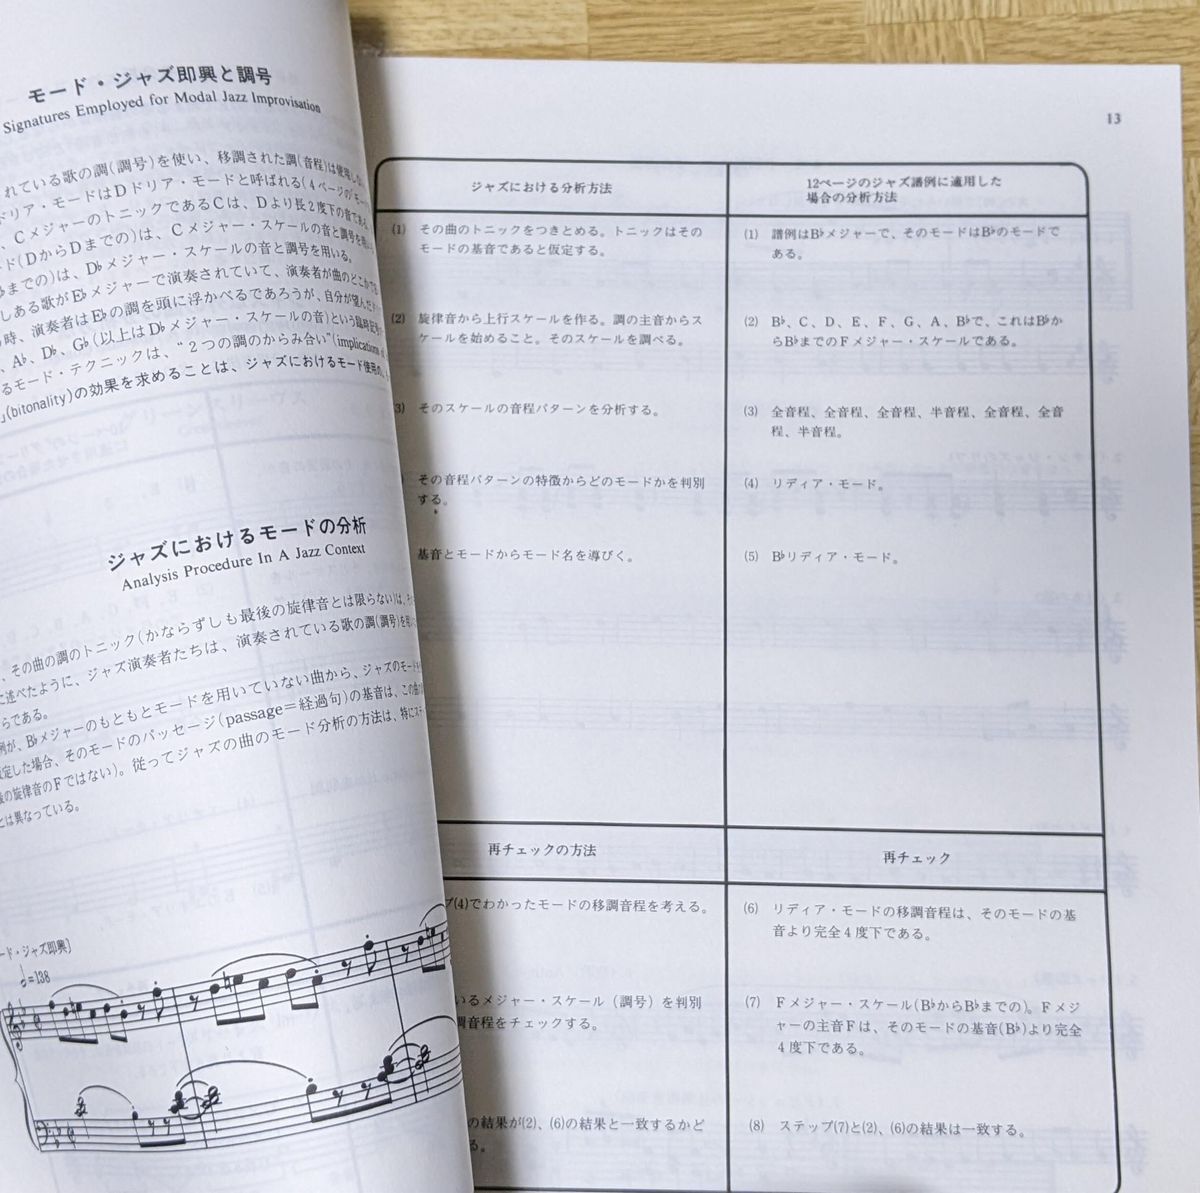 モード・ジャズ即興と調号
Signatures Employed for Modal Jazz Improvisation
れている歌の調(調号)を使い、移調された調(音程)は使用しない
ドリア・モードはDドリア・モードと呼ばれる(4ページの“モー
、CメジャーのトニックであるCは、Dより長2度下の音である
ド(DからDまでの)は、Cメジャー・スケールの音と調号を用い
までの)は、D♭メジャー・スケールの音と調号を用いる。
しある歌がE♭メジャーで演奏されていて、演奏者が曲のどこかで
時、演奏者はE♭の調を頭に浮かべるであろうが、自分が望んだ
、A♭、D♭、G♭(以上はD♭メジャー・スケールの音)という臨時記号
るモード・テクニックは、“2つの調のからみ合い”(implications
」(bitonality)の効果を求めることは、ジャズにおけるモード使用の
ジャズにおけるモードの分析
Analysis Procedure In A Jazz Context
、その曲の調のトニック(かならずしも最後の旋律音とは限らない)は、
に述べたように、ジャズ演奏者たちは、演奏されている歌の調(調号)を用い
らである。
例が、B♭メジャーのもともとモードを用いていない曲から、ジャズのモード
仮定した場合、そのモードのパッセージ(passage=経過句)の基音は、この曲
の旋律音のFではない)。従ってジャズの曲のモード分析の方法は、特に
とは異なっている。
ード・ジャズ即興〕
=138
13
ジャズにおける分析方法
12ページのジャズ譜例に適用した
場合の分析方法
(1) その曲のトニックをつきとめる。トニックはその
モードの基音であると仮定する。
(1) 譜例はB♭メジャーで、そのモードはB♭のモードで
ある。
(2) 旋律音から上行スケールを作る。調の主音からス
ケールを始めること。そのスケールを調べる。
(2) B♭、C、D、E、F、G、A、B♭で、これはB♭か
らB♭までのFメジャー・スケールである。
3) そのスケールの音程パターンを分析する。
(3) 全音程、全音程、全音程、半音程、全音程、全音
程、半音程。
その音程パターンの特徴からどのモードかを判別
する。
(4) リディア・モード。
基音とモードからモード名を導びく。
(5) B♭リディア・モード。
再チェックの方法
再チェック
プ(4)でわかったモードの移調音程を考える。
(6) リディア・モードの移調音程は、そのモードの基
音より完全4度下である。
いるメジャー・スケール(調号)を判別
調音程をチェックする。
(7) Fメジャー・スケール(B♭からB♭までの)。Fメジ
ャーの主音Fは、そのモードの基音(B♭)より完全
4度下である。
の結果が(2)、(6)の結果と一致するかど
る。
(8) ステップ(7)と(2)、(6)の結果は一致する。